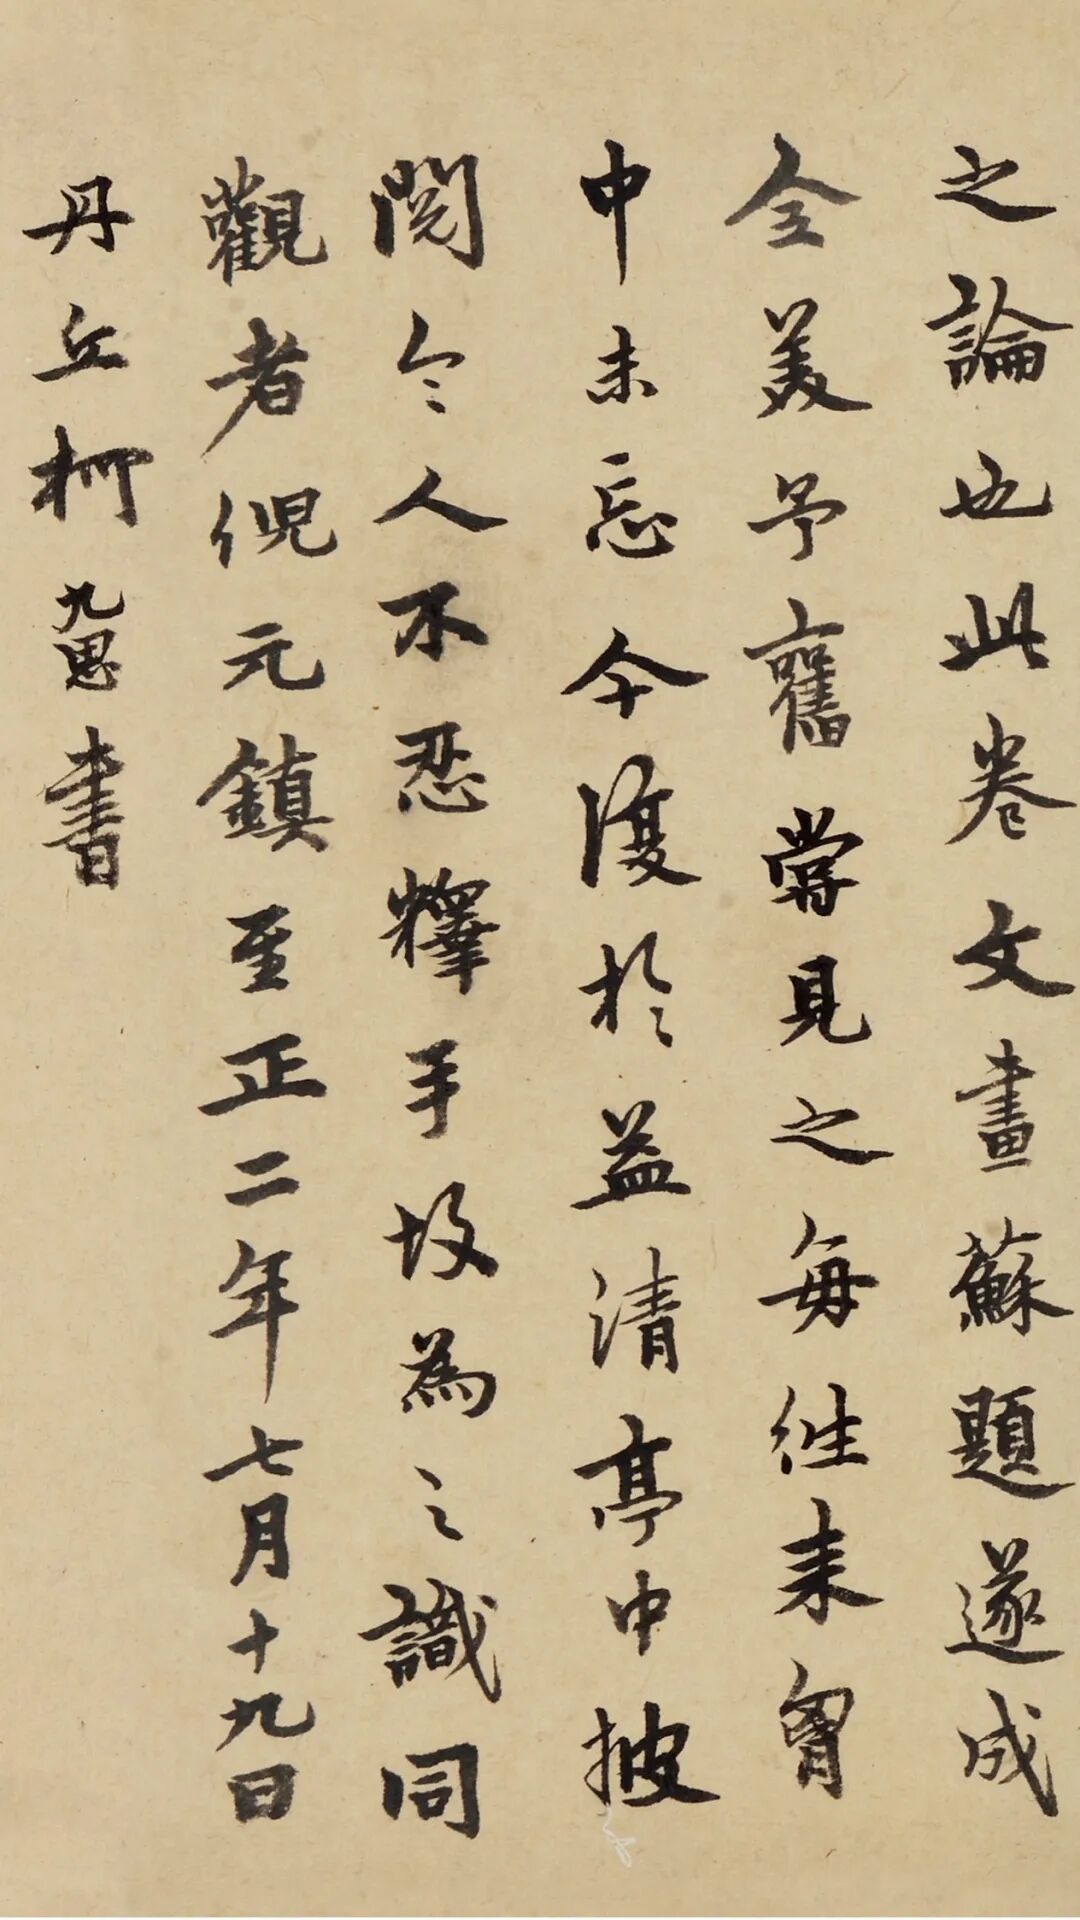 之論也此卷文畫蘇題遂成
全美予舊嘗見之每往来胷
中未忘今復於益清亭中披
閱令人不忍釋手故為之識同
觀者倪元鎮至正二年七月十九日
丹丘柯九思書